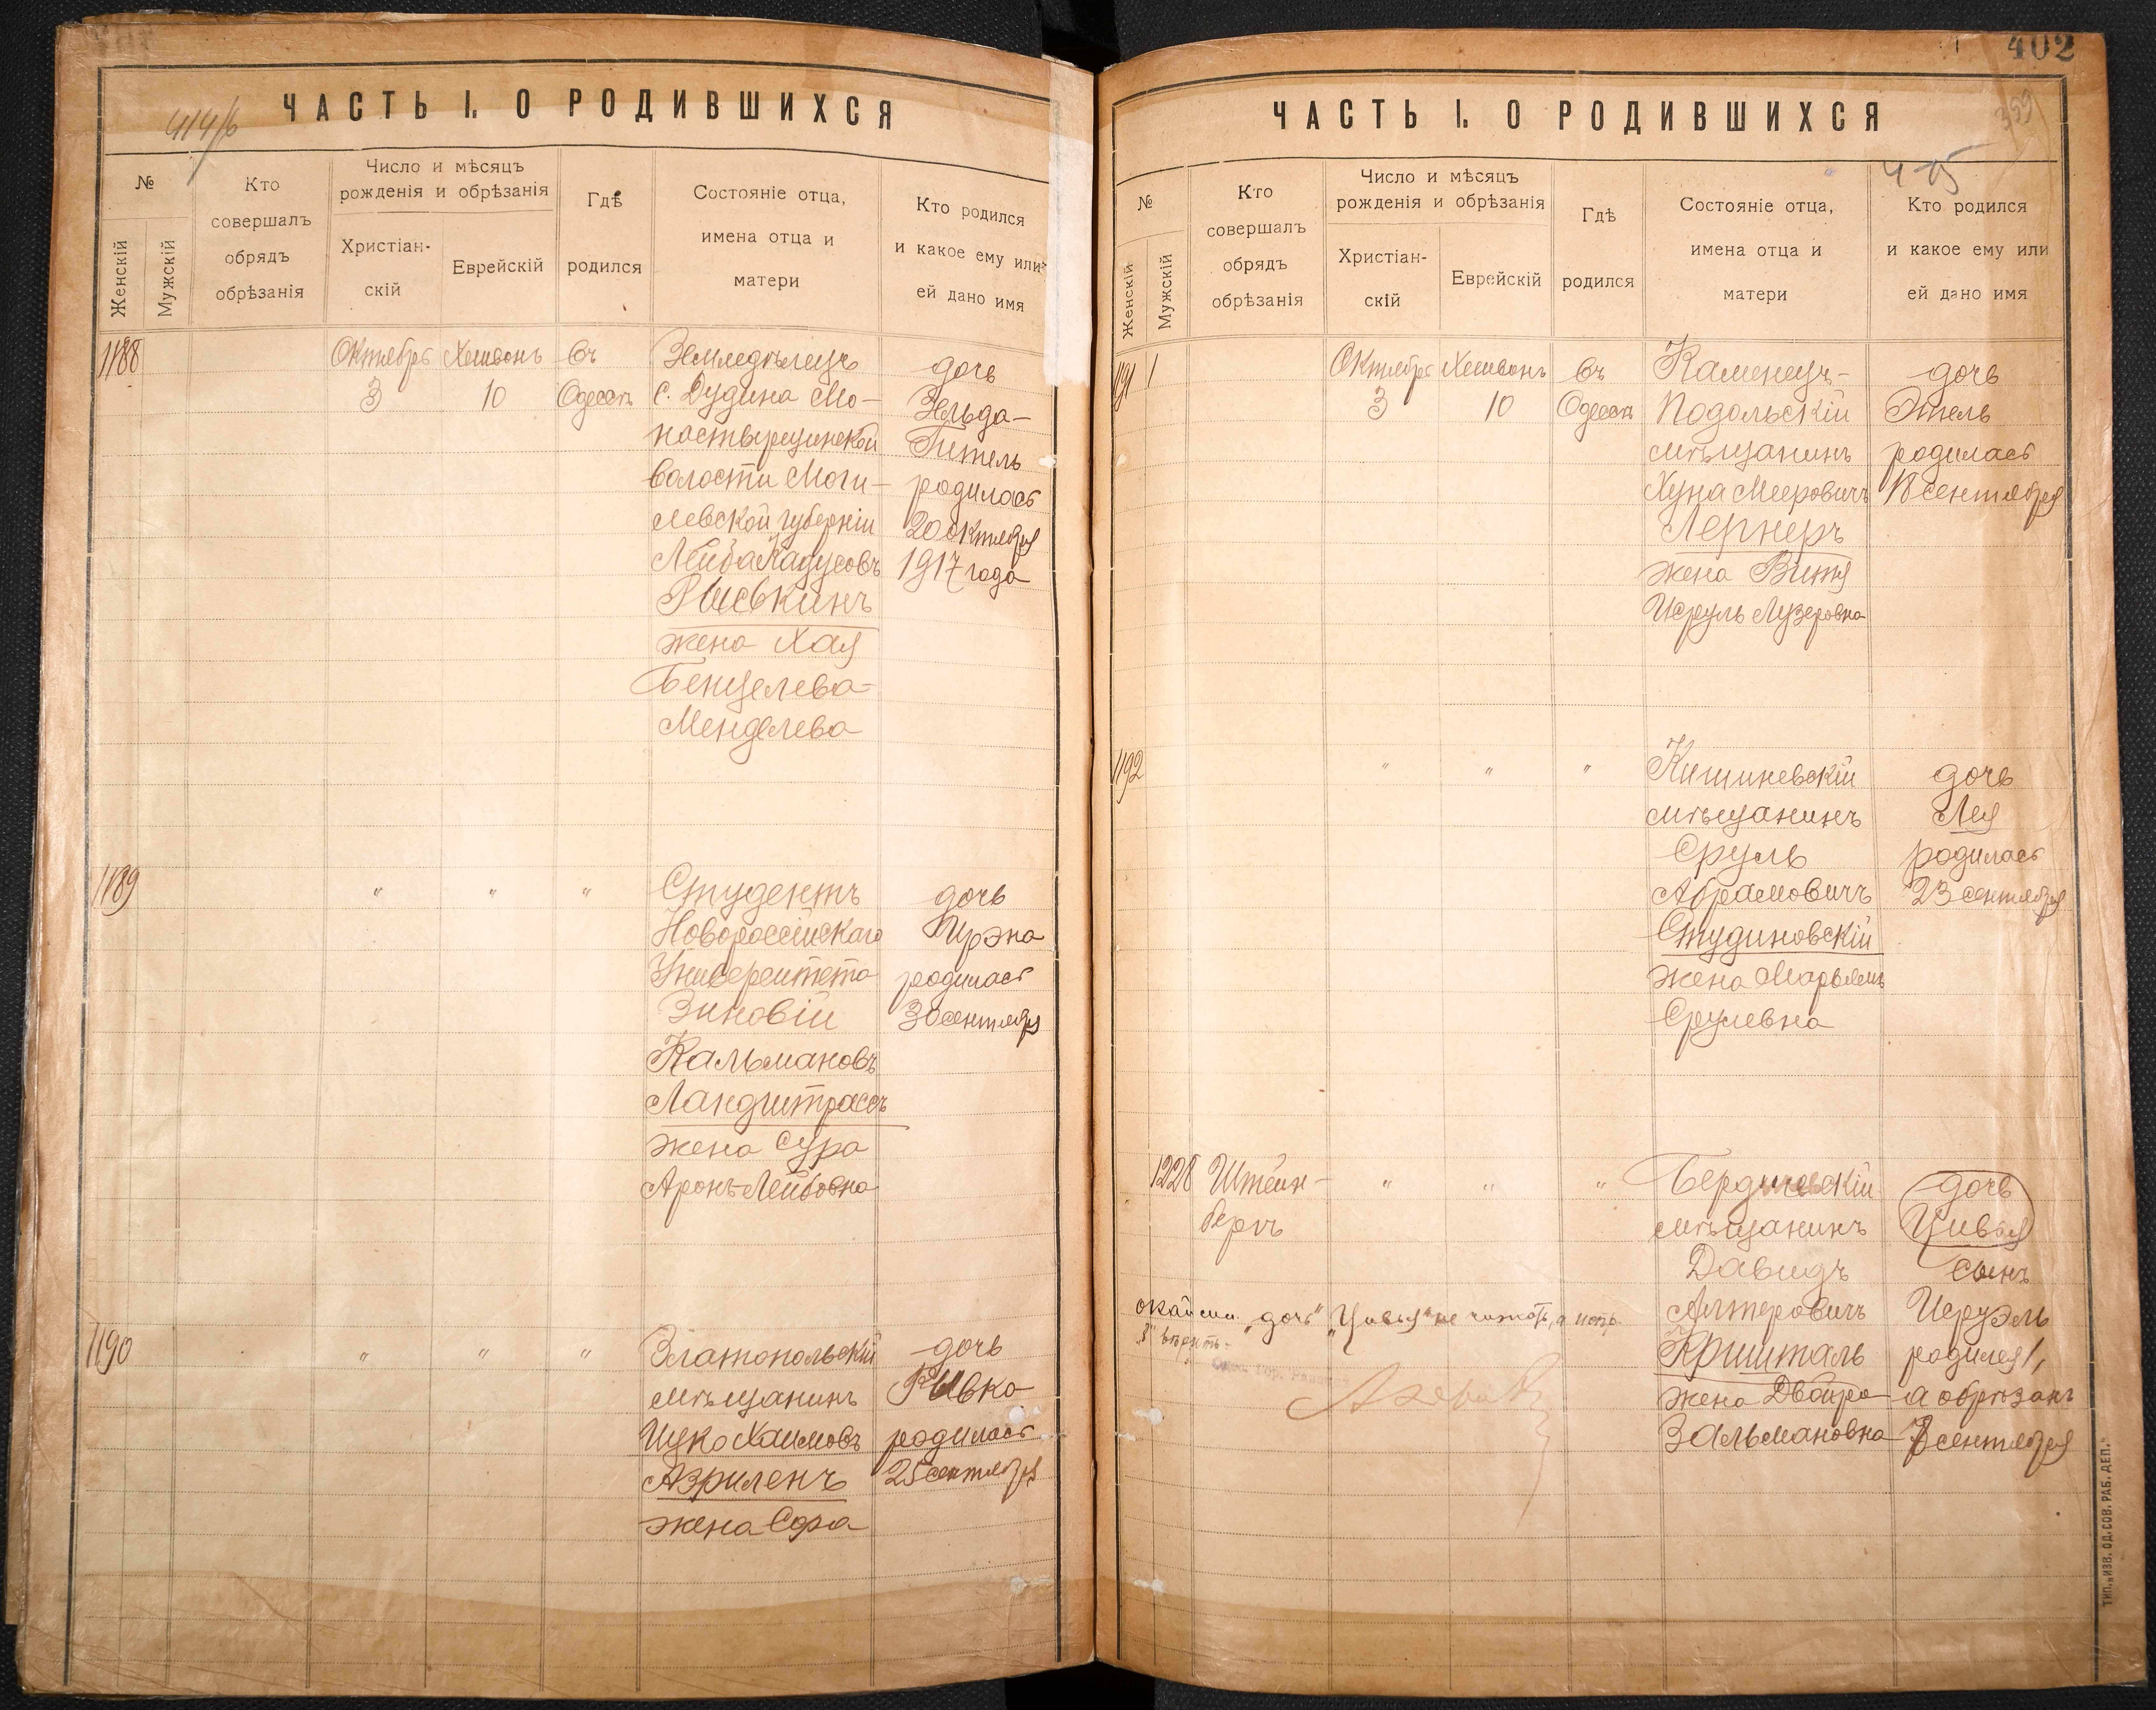 414/6
ЧАСТЬ I. О РОДИВШИХСЯ
№
Женскій
Мужскій
Кто
совершалъ
обрядъ
обрѣзанія
Число и мѣсяцъ
рожденія и обрѣзанія
Христіан-
скій
Еврейскій
Гдѣ
родился
Состояніе отца,
имена отца и
матери
Кто родился
и какое ему или
ей дано имя
1188
Октябрь
3
Хешвонъ
10
Въ
Одессѣ
Земледѣлецъ
с. Дудина Мо-
настырщинской
волости Моги-
левской губерніи
Лейба
Рыськинъ
жена Хая
Бенцелева-
Менделева
дочь
Зельда-
Гитель
родилась
20 октября
1917 года
1189
"
"
"
Студентъ
Новороссійскаго
Университета
Зиновій
Кальмановъ
Ландштрассъ
жена Сура
Аронъ-Лейбовна
дочь
Ирэна
родилась
30 сентября
1190
"
"
"
Златопольскій
мѣщанинъ
Ицко Хаимовъ
Азриленъ
жена Сора
дочь
Рывка
родилась
25 сентября
402
359
ЧАСТЬ I. О РОДИВШИХСЯ
№
Женскій
Мужскій
Кто
совершалъ
обрядъ
обрѣзанія
Число и мѣсяцъ
рожденія и обрѣзанія
Христіан-
скій
Еврейскій
Гдѣ
родился
Состояніе отца,
имена отца и
матери
Кто родился
и какое ему или
ей дано имя
1191
Октябрь
3
Хешвонъ
10
Въ
Одессѣ
Каменецъ-
Подольскій
мѣщанинъ
Хуна Мееровичъ
Лернеръ
жена Витя
Исруль Лузеровна
дочь
Этель
родилась
18 сентября
1192
"
"
"
Кишиневскій
мѣщанинъ
Сруль
Абрамовичъ
Студиновскій
жена Марьямъ
Срулевна
дочь
Лея
родилась
23 сентября
1228
Штейн-
бергъ
"
"
"
Бердичевскій
мѣщанинъ
Давидъ
Алтеровичъ
Кришталь
жена Двойра
Зальмановна
дочь
Цивья
сынъ
Исруэль
родился 1,
а обрѣзанъ
8 сентября
"дочь" "Цивья" не читать, а испр.
"8" вѣрить.
ТИП. „ИЗВ. ОД. СОВ. РАБ. ДЕП."